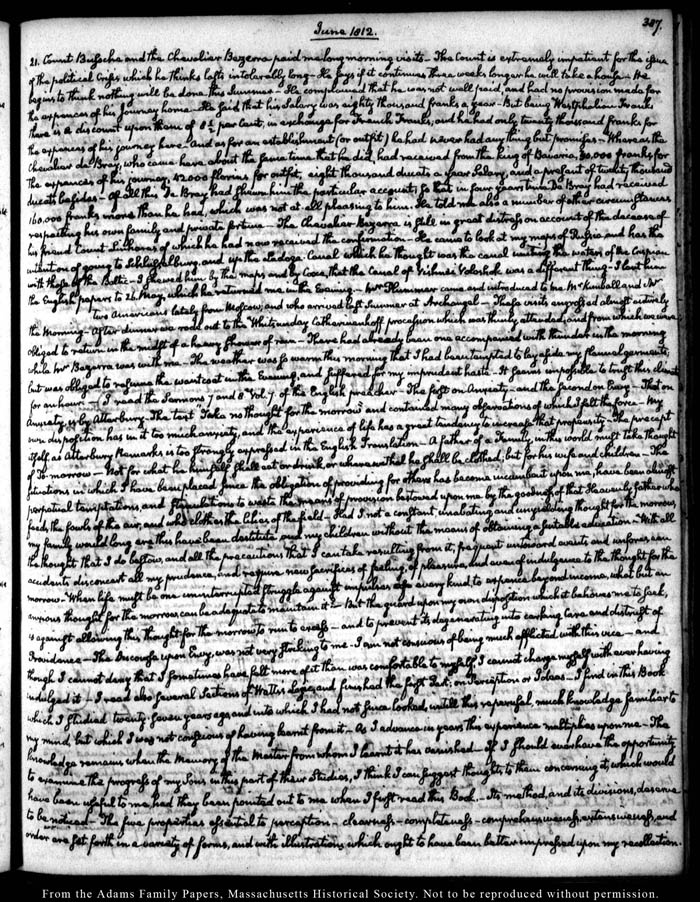 387.
June 1812.
21. Count Bussche and the Chevalier Bezerra paid me long morning visits – The Count is extremely impatient for the issue
of the political Crisis which he thinks lasts intolerably long – He says if it continues three weeks longer he will take a house – He
begins to think nothing will be done this Summer – He complained that he was not well paid, and had no provision made for
the expences of his journey home – He said that his Salary was eighty thousand franks a year – But being Westphalian Franks
there is a discount upon them of 8½ per Cent, in exchange for French Franks, and he had only twenty thousand franks for
the expences of his journey here – And as for an establishment (or outfit) he had never had any thing but promises – Whereas the
Chevalier de Bray, who came here about the same time that he did, had received from the King of Bavaria, 30,000 franks for
the expences of his journey, 42000 florins for outfit, eight thousand ducats a year Salary, and a present of twenty thousand
ducats besides – Of all this De Bray had shewn him the particular account, so that in four years time De Bray had received
160,000 franks more than he had, which was not at all pleasing to him – He told me also a number of other circumstances
respecting his own family and private fortune – The Chevalier Bezerra is still in great distress on account of the decease of
his friend Count Linhares of which he had now received the confirmation – He came to look at my maps of Russia, and has the
intention of going to Schlusselburg, and up the Ladoga Canal which he thought was the canal uniting the waters of the Caspian
with those of the Baltic – I shewed him by the maps and by Coxe, that the Canal of Vishnei Voloshok was a different thing – I lent him
the English papers to 26. May, which he returned me in the Evening – Mr Plummer came and introduced to me Mr Kimball and Mr
Two Americans lately from Moscow, and who arrived last Summer at Archangel – These visits engrossed almost entirely
the Morning – After dinner we rode out to the Whitsunday Catherinenhoff procession which was thinly attended, and from which we were
obliged to return in the midst of a heavy shower of rain – There had already been one accompanied with thunder in the morning
while Mr Bezerra was with me – The weather was so warm this morning that I had been tempted to lay aside my flannel garments;
but was obliged to resume the waistcoat in the Evening, and suffered for my imprudent haste – It seems impossible to trust this climate
for an hour – I read the Sermons 7 and 8 Vol. 7 of the English preacher – The first on Anxiety – and the second on Envy – That on
Anxiety, is by Atterbury – The text Take no thought for the morrow and contained many observations of which I felt the force – My
own disposition has in it too much anxiety, and the experience of life has a great tendency to increase that propensity – The precept
itself as Atterbury Remarks is too strongly expressed in the English Translation – A father of a Family, in this world must take thought
of To-morrow – Not for what he himself shall eat or drink, or wherewithal he shall be clothed, but for his wife and children – The
situations in which I have been placed since the obligation of providing for others has become incumbent upon me, have been almost
perpetual temptations and stimulations to waste the means of provision bestowed upon me by the goodness of that Heavenly father who
feeds the fowls of the air, and who clothes the lilies of the field – Had I not a constant, unabating and unyielding thought for the morrow,
my family would long ere this have been destitute and my children without the means of obtaining a suitable education – With all
the thought that I do bestow, and all the precautions that I can take resulting from it, frequent untoward events and unforeseen
accidents disconcert all my prudence, and require new sacrifices of feeling, of pleasure, and even of indulgence to the thought for the
morrow – When life must be one uninterrupted struggle against impulses of every kind, to expence beyond income, what but an
anxious thought for the morrow, can be adequate to maintain it? – But the guard upon my own disposition which it behooves me to seek,
is against allowing this thought for the morrow to run to excess – and to prevent its degenerating into carking care and distrust of
Providence – The Discourse upon Envy, was not very striking to me – I am not conscious of being much afflicted with this vice – and
though I cannot deny that I sometimes have felt more of it than was comfortable to myself, I cannot charge myself with ever having
indulged it – I read also several Sections of Watts's Logic, and finished the first Part; on Perception or Ideas – I find in this Book
which I studied twenty seven years ago, and into which I had not since looked, untill this reperusal, much knowledge familiar to
my mind, but which I was not conscious of having learnt from it – As I advance in years this experience multiplies upon me – The
knowledge remains when the Memory of the Master from whom I learnt it has vanished – If I should ever have the opportunity
to examine the progress of my Sons in this part of their Studies, I think I can suggest thoughts to them concerning it, which would
have been useful to me had they been pointed out to me when I first read this Book – Its method, and its divisions, deserve
to be noticed – The five properties essential to perception – clearness – completeness – comprehensiveness, extensiveness, and
order are set forth in a variety of forms, and with illustrations which ought to have been better impressed upon my recollection.
From the Adams Family Papers, Massachusetts Historical Society. Not to be reproduced without permission.